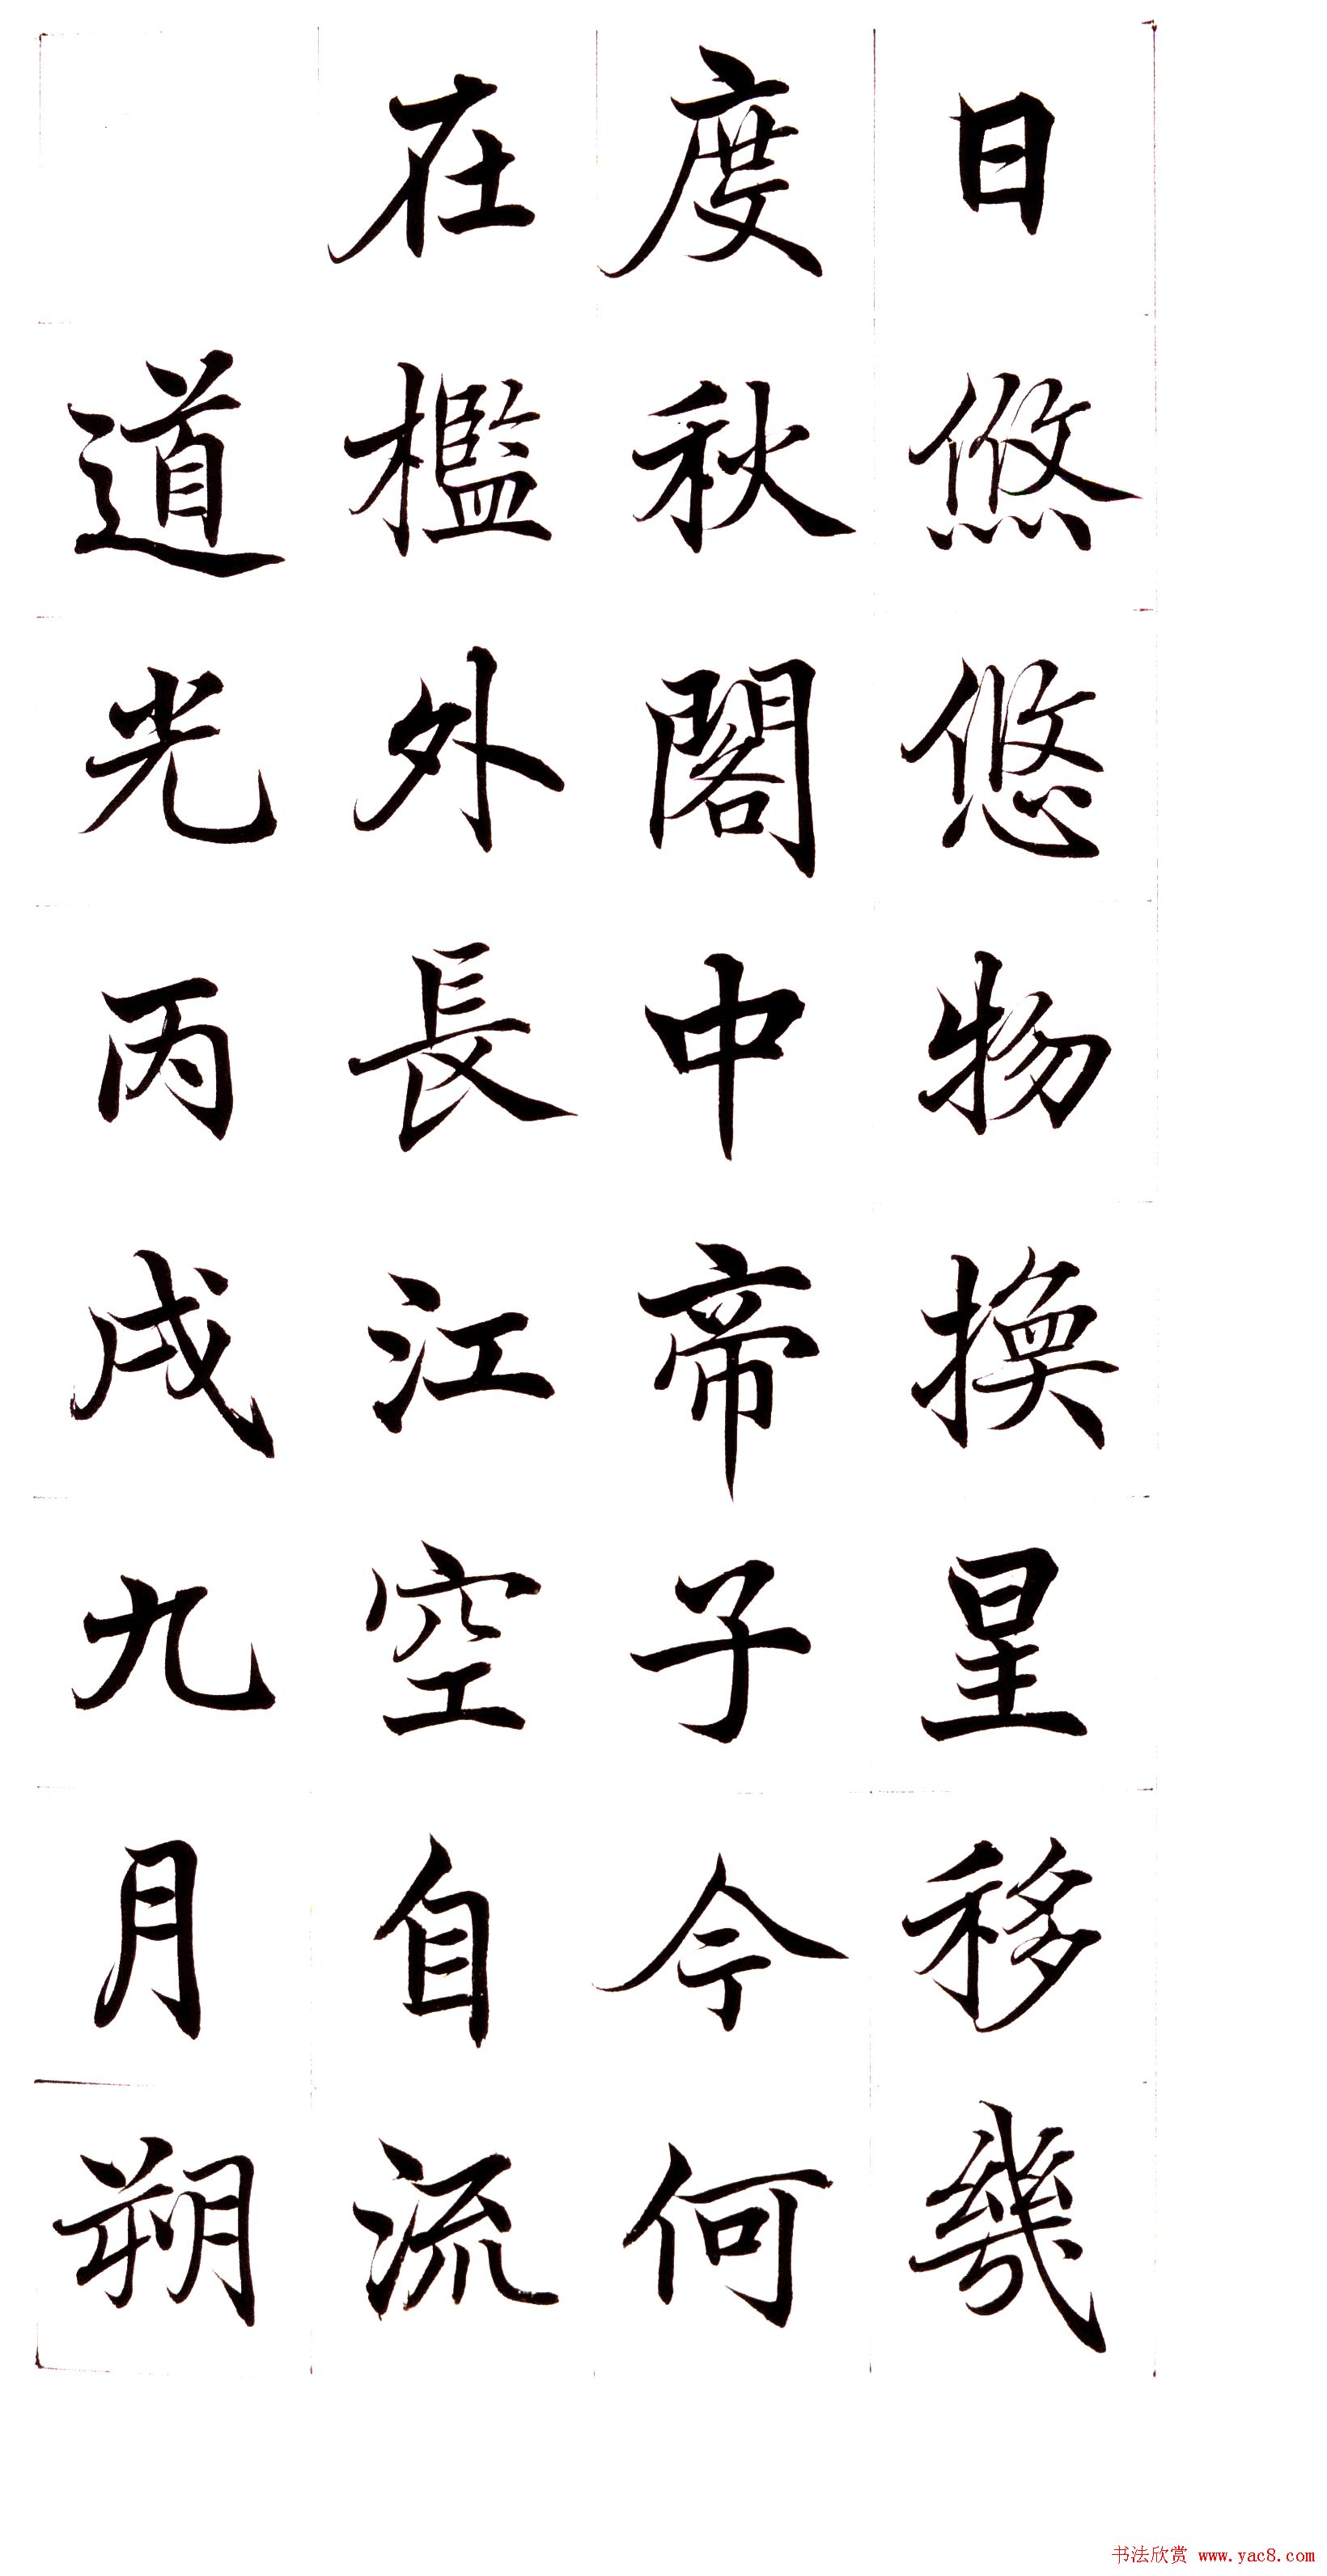 日悠悠物換星移幾
度秋閣中帝子今何
在檻外長江空自流
道光丙戌九月朔
书法欣赏 www.yac8.com